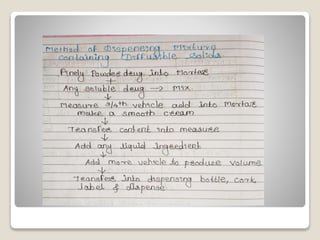 Method of Dispensing Mixture
containing Diffusible solids
Finely Powder drug into Mortar
↓
Any soluble drug → Mix
↓
Measure 3/4th vehicle add into Mortar
make a smooth cream
↓
Transfer content into measure
↓
Add any liquid ingredient
↓
Add more vehicle to produce volume
↓
Transfer into dispensing bottle, cork
label & dispense